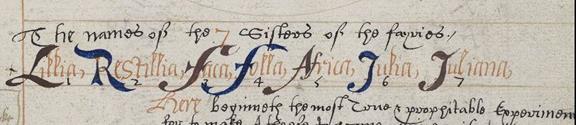 The names of the 7 Sisters of the fayries.
Lillia, Restillia, Foca, Folla, Africa, Julia, Juliana,
1 2 3 4 5 6 7
Here beginneth the most true & prophitable Experiment
for to make